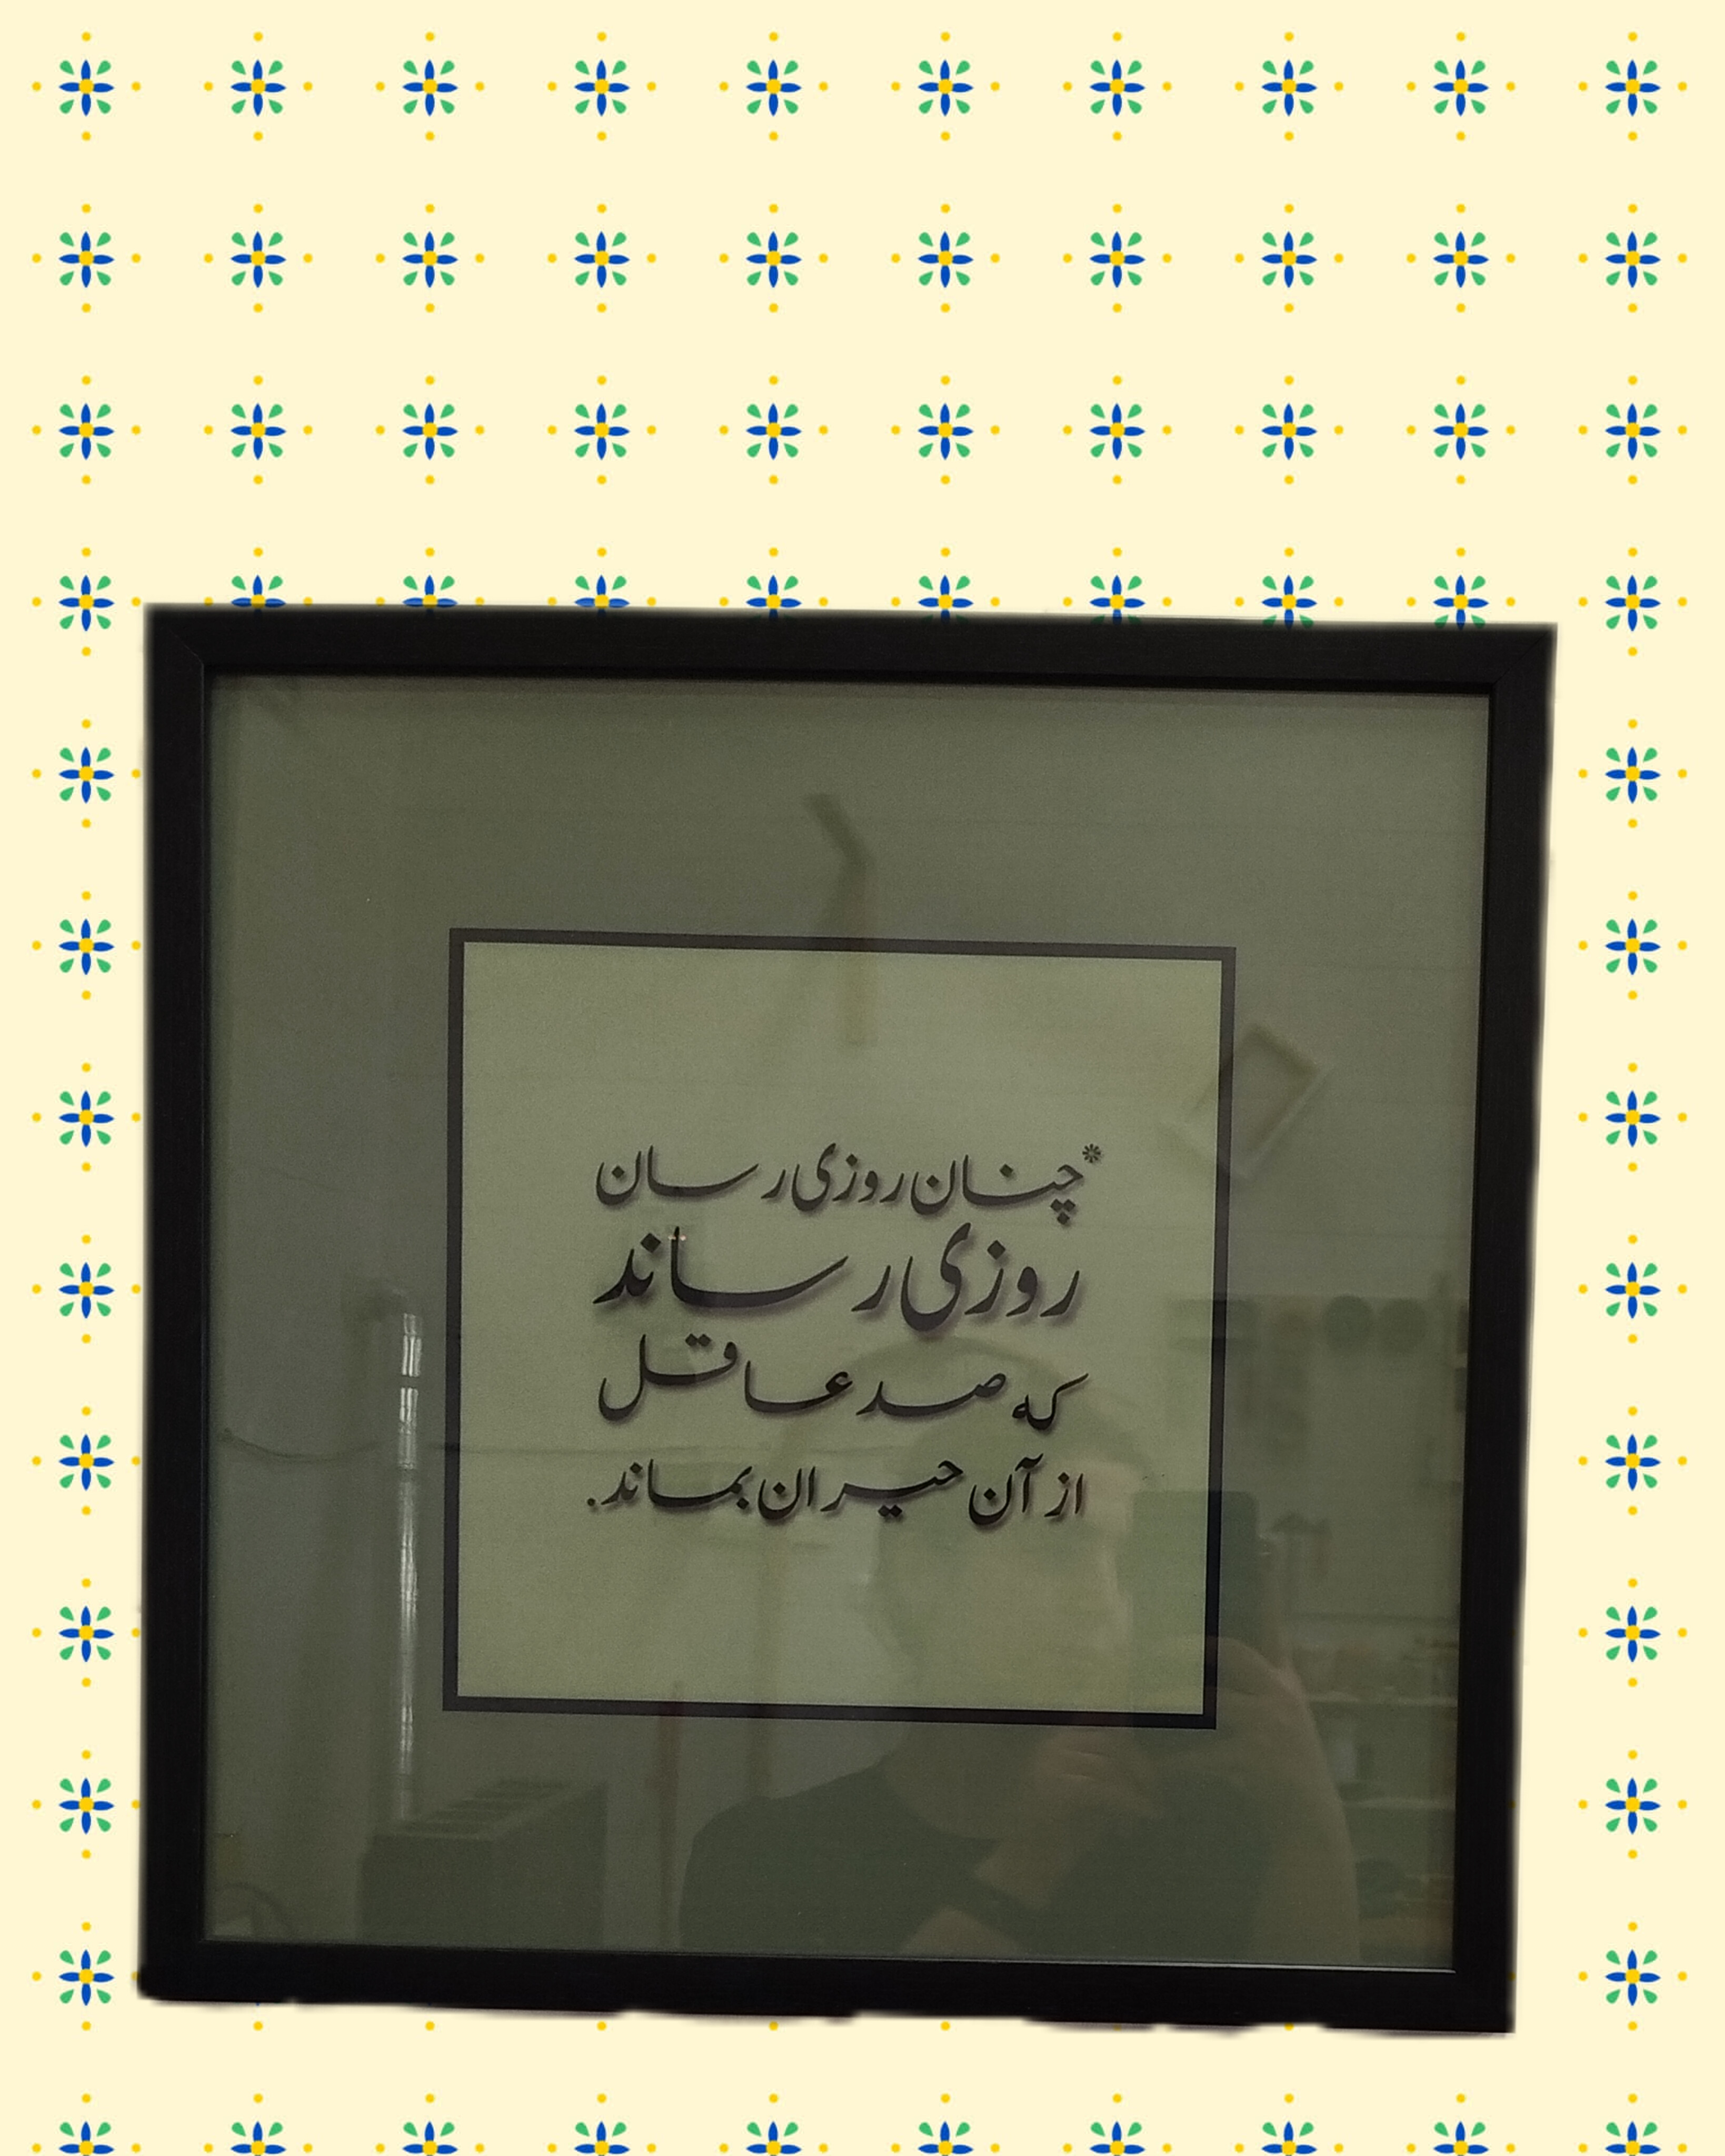 *چنان روزی رسان
روزی رساند
که صد عاقل
از آن حیران بماند.